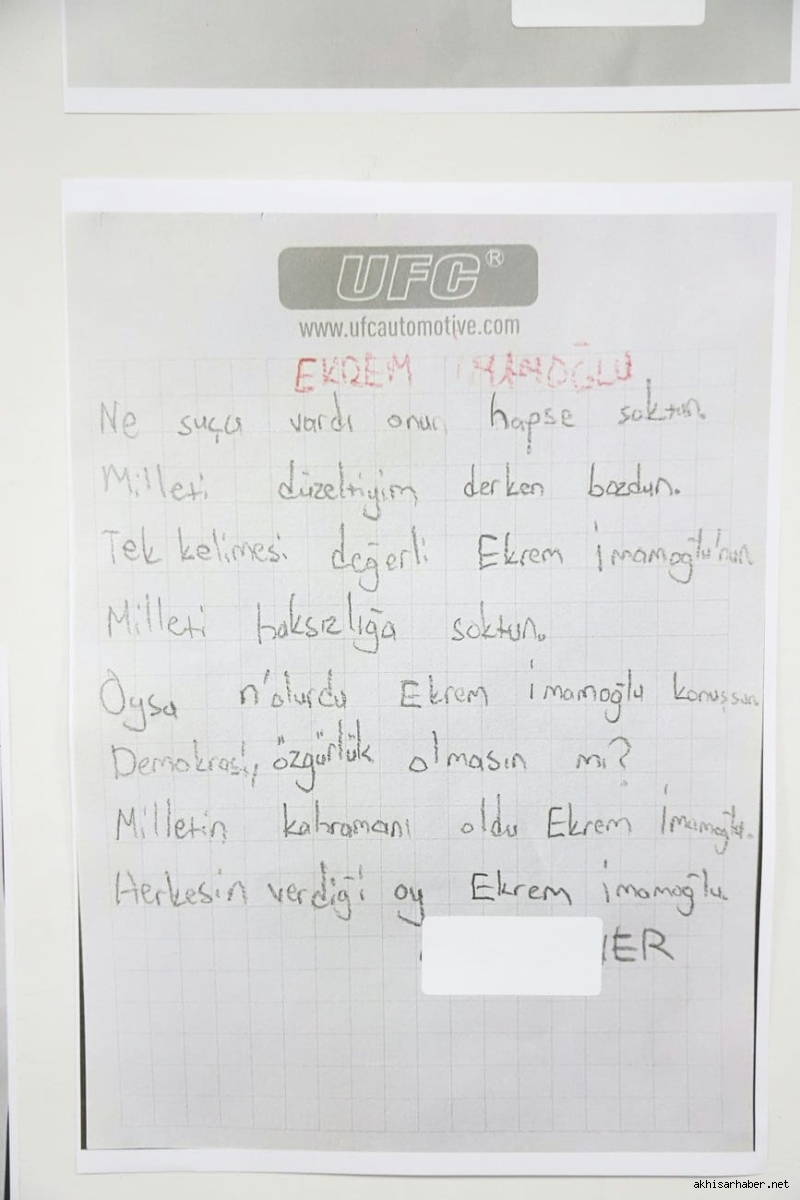 UFC®
www.ufcautomotive.com
EKREM İMAMOĞLU
Ne suçu vardı onun hapse soktun.
Milleti düzeltiyim derken bozdun.
Tek kelimesi değerli Ekrem İmamoğlu'nun
Milleti haksızlığa soktun.
Oysa n'olurdu Ekrem İmamoğlu konuşsun.
Demokrasi, özgürlük olmasın mı?
Milletin kahramanı oldu Ekrem İmamoğlu.
Herkesin verdiği oy Ekrem İmamoğlu.
akhisarhaber.net